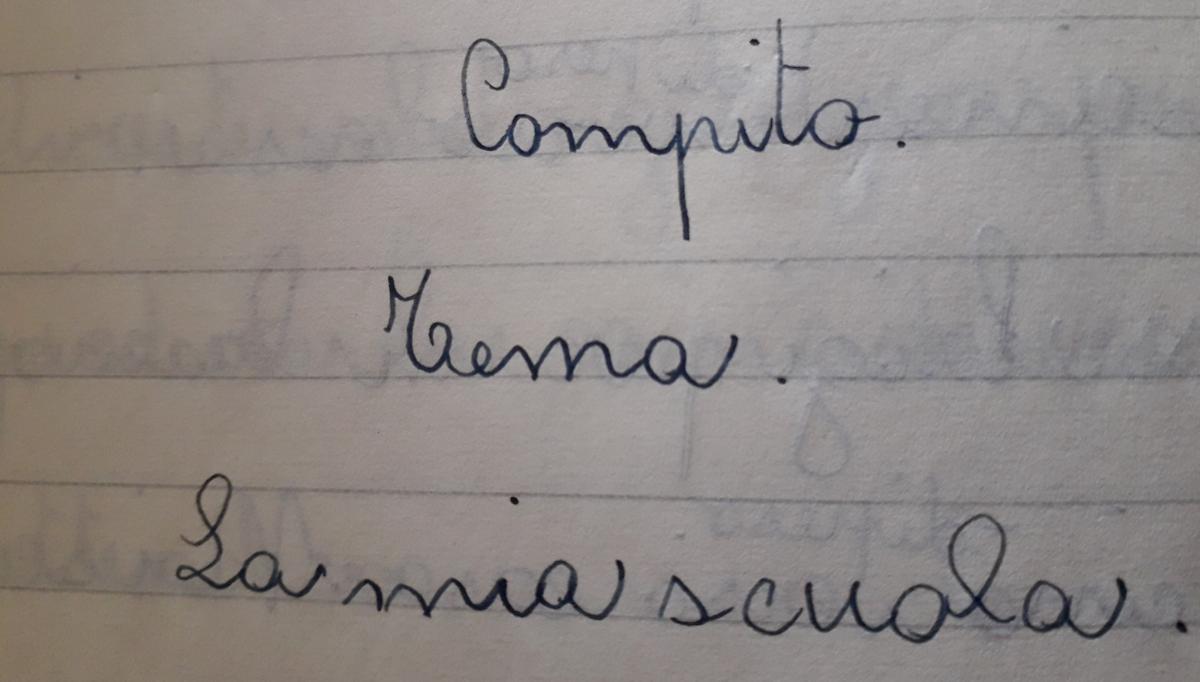 Compito.
Tema.
La mia scuola.